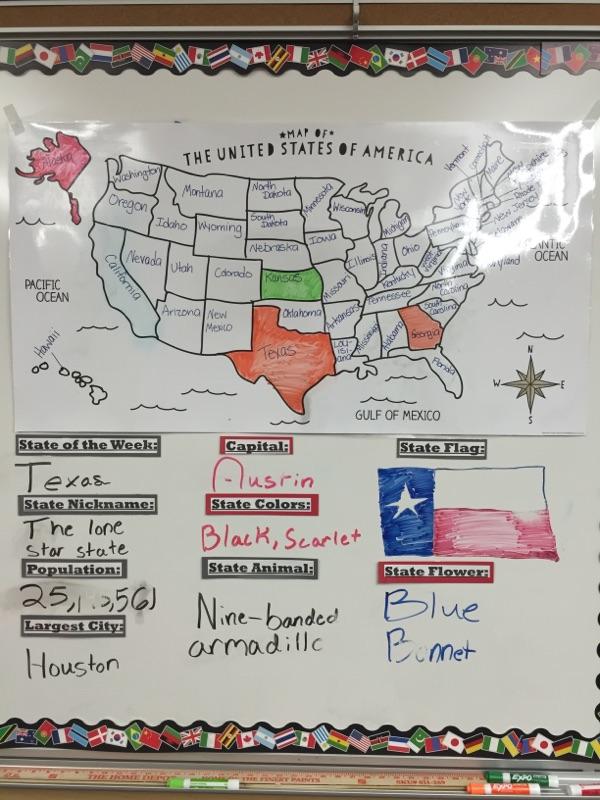 ★MAP OF★
THE UNITED STATES OF AMERICA
Alaska
Washington
Oregon
Montana
Idaho
Wyoming
North Dakota
South Dakota
Nebraska
Minnesota
Wisconsin
Iowa
Michigan
Illinois
Indiana
Ohio
Vermont
Maine
California
Nevada
Utah
Colorado
Kansas
Missouri
Kentucky
Tennessee
Virginia
North Carolina
South Carolina
Arizona
New Mexico
Oklahoma
Texas
Arkansas
Louisiana
Alabama
Georgia
Florida
Hawaii
PACIFIC
OCEAN
OCEAN
GULF OF MEXICO
N
W E
S
State of the Week:
Texas
Capital:
Austin
State Flag:
State Nickname:
The lone
star state
State Colors:
Black, Scarlet
Population:
Largest City:
Houston
State Animal:
Nine-banded
armadillo
State Flower:
Blue
Bonnet
THE HOME DEPOT
EXPO
EXPO